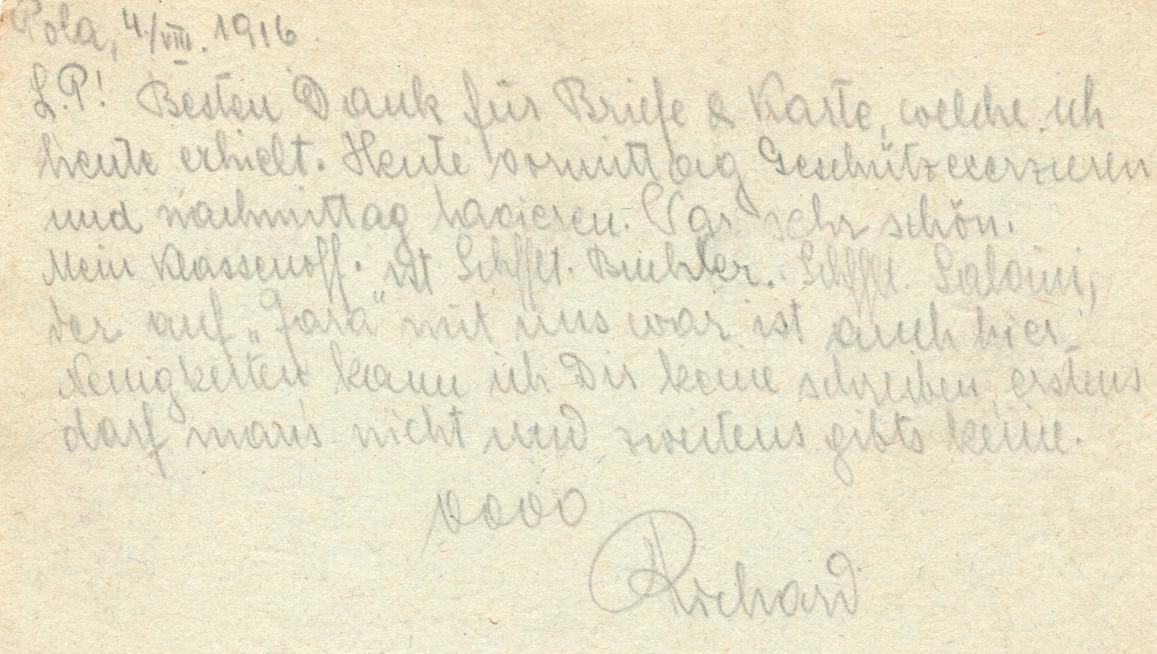 Pola, 4./VIII. 1916.
L.P! Besten Dank für Briefe & Karte, welche ich
heute erhielt. Heute vormittag Geschützexerzieren
und nachmittag War sehr schön.
Mein Klassenoff. ist Schffst. Buchler. Schffst.
der auf „Zara" mit uns war ist auch hier.
Neuigkeiten kann ich Dir keine schreiben, erstens
darf mans nicht und zweitens gibts keine.
Richard